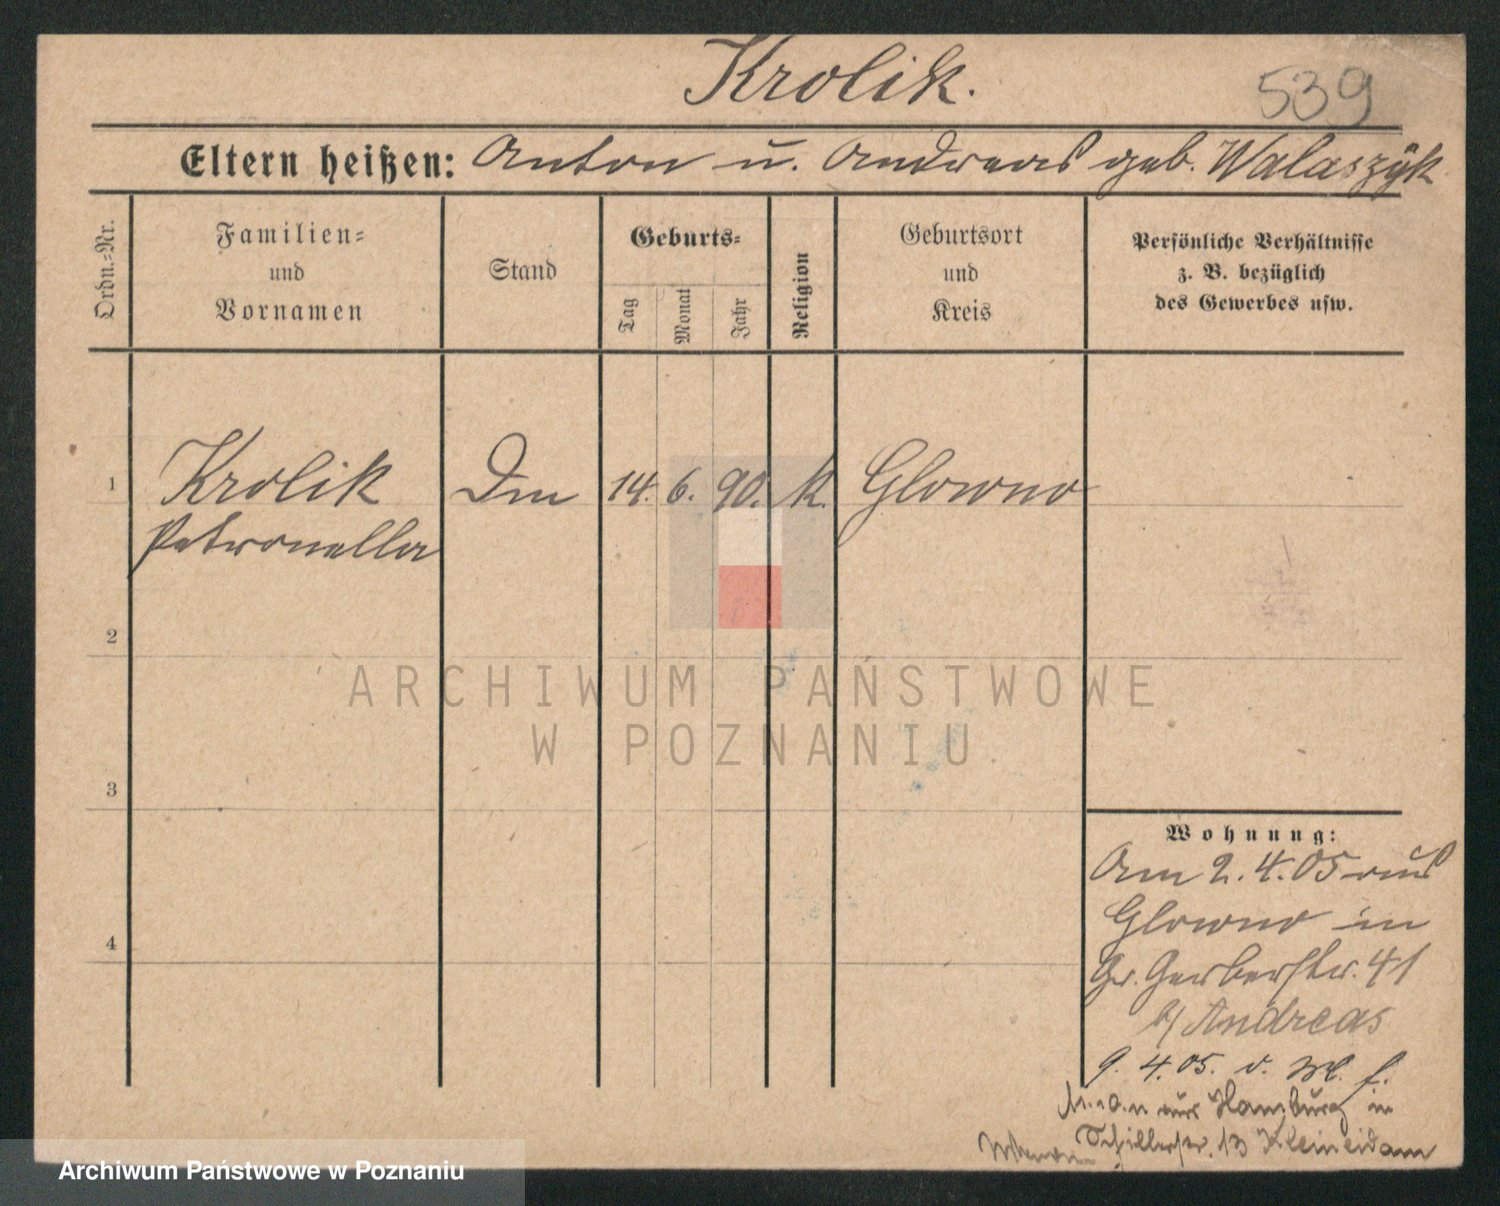 Krolik.
539
Eltern heißen: Anton u. Andreas geb. Walaszÿk
Ordn.-Nr.
Familien-
und
Vornamen
Stand
Geburts-
Tag
Monat
Jahr
Religion
Geburtsort
und
Kreis
Persönliche Verhältnisse
z. B. bezüglich
des Gewerbes usw.
1 Krolik Dm 14. 6. 90. k. Glowno
Petronella
2
3
4
Wohnung:
Am 2.4.05 aus
Glowno in
Gr. Gerberstr. 41
b/ Andreas
9. 4. 05. v. M. f.
aus Hamburg in
Schillerstr. 13 Kleineidam
ARCHIWUM PAŃSTWOWE
W POZNANIU
Archiwum Państwowe w Poznaniu